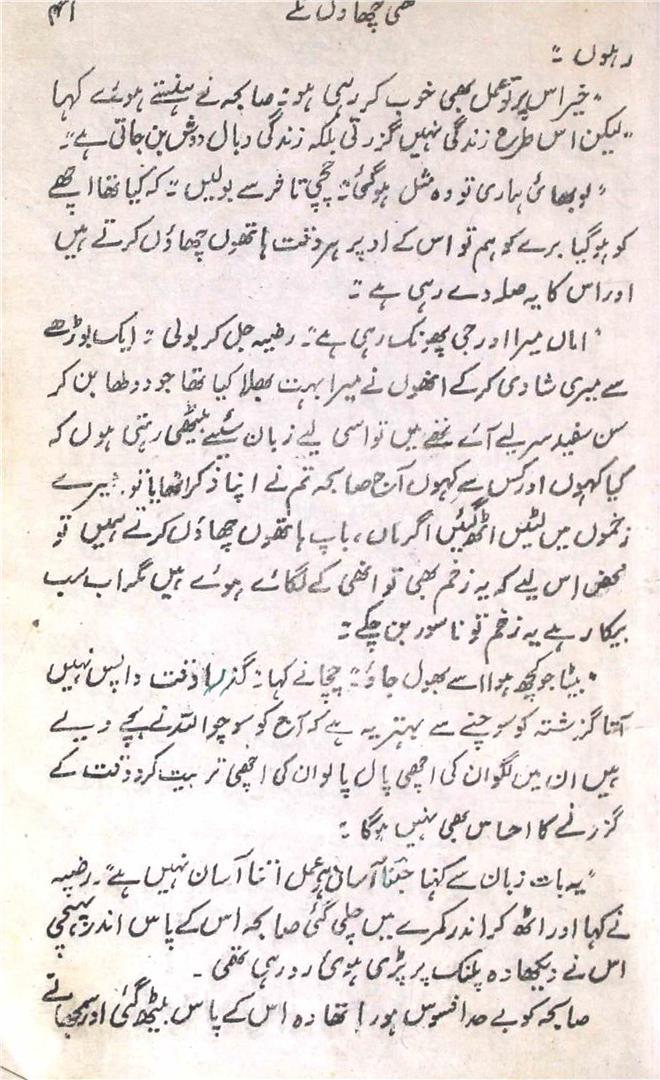 گھنی چھاؤں تلے
رہوں۔"
"خیر اس پر تو عمل بھی خوب کر رہی ہو۔" صابحہ نے ہنستے ہوئے کہا
"لیکن اس طرح زندگی نہیں گزرتی بلکہ زندگی وبال دوش بن جاتی ہے۔"
"لو بھائی ہماری تو وہ مثل ہوگئی۔" چچی تاخر سے بولیں۔ "کہ کیا تھا اچھے
کو ہو گیا برے کو ہم تو اس کے اوپر ہر وقت ہاتھوں چھاؤں کرتے ہیں
اور اس کا یہ صلہ دے رہی ہے۔"
"اماں میرا اور جی پھونک رہی ہے۔" رضیہ جل کر بولی۔ "ایک بوڑھے
سے میری شادی کر کے انھوں نے میرا بہت بھلا کیا تھا جو دولھا بن کر
سن سفید سر لیے آئے تھے میں تو اسی لیے زبان سئیے بیٹھی رہتی ہوں کہ
کیا کہوں اور کس سے کہوں آج صابحہ تم نے اپنا ذکر اٹھایا تو میرے
زخموں میں لپٹیں اٹھ گئیں اگر ماں، باپ ہاتھوں چھاؤں کرتے ہیں تو
محض اس لیے کہ یہ زخم بھی تو انھی کے لگائے ہوئے ہیں مگر اب سب
بیکار ہے یہ زخم تو ناسور بن چکے۔"
"بیٹا جو کچھ ہوا اسے بھول جاؤ۔" چچا نے کہا۔ "گزرا وقت واپس نہیں
آتا گزشتہ کو سوچنے سے بہتر یہ ہے کہ آج کو سوچو اللہ نے بچے دیے
ہیں ان میں لگو ان کی اچھی پال پالو ان کی اچھی تربیت کرو وقت کے
گزرنے کا احساس بھی نہیں ہوگا۔"
"یہ بات زبان سے کہنا جتنا آسان ہے عمل اتنا آسان نہیں ہے"۔ رضیہ
نے کہا اور اٹھ کر اندر کمرے میں چلی گئی صابحہ اس کے پاس اندر پہنچی
اس نے دیکھا وہ پلنگ پر پڑی ہوئی رو رہی تھی۔
صابحہ کو بے حد افسوس ہو رہا تھا وہ اس کے پاس بیٹھ گئی اور سمجھانے